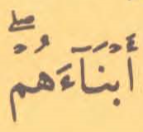 أَبْنَآءَهُمْۖ